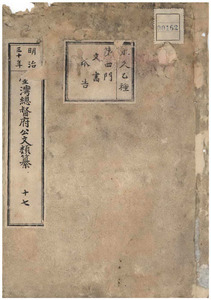 永久乙種
第四門
文書
明治
三十年
臺灣總督府公文類纂
十七